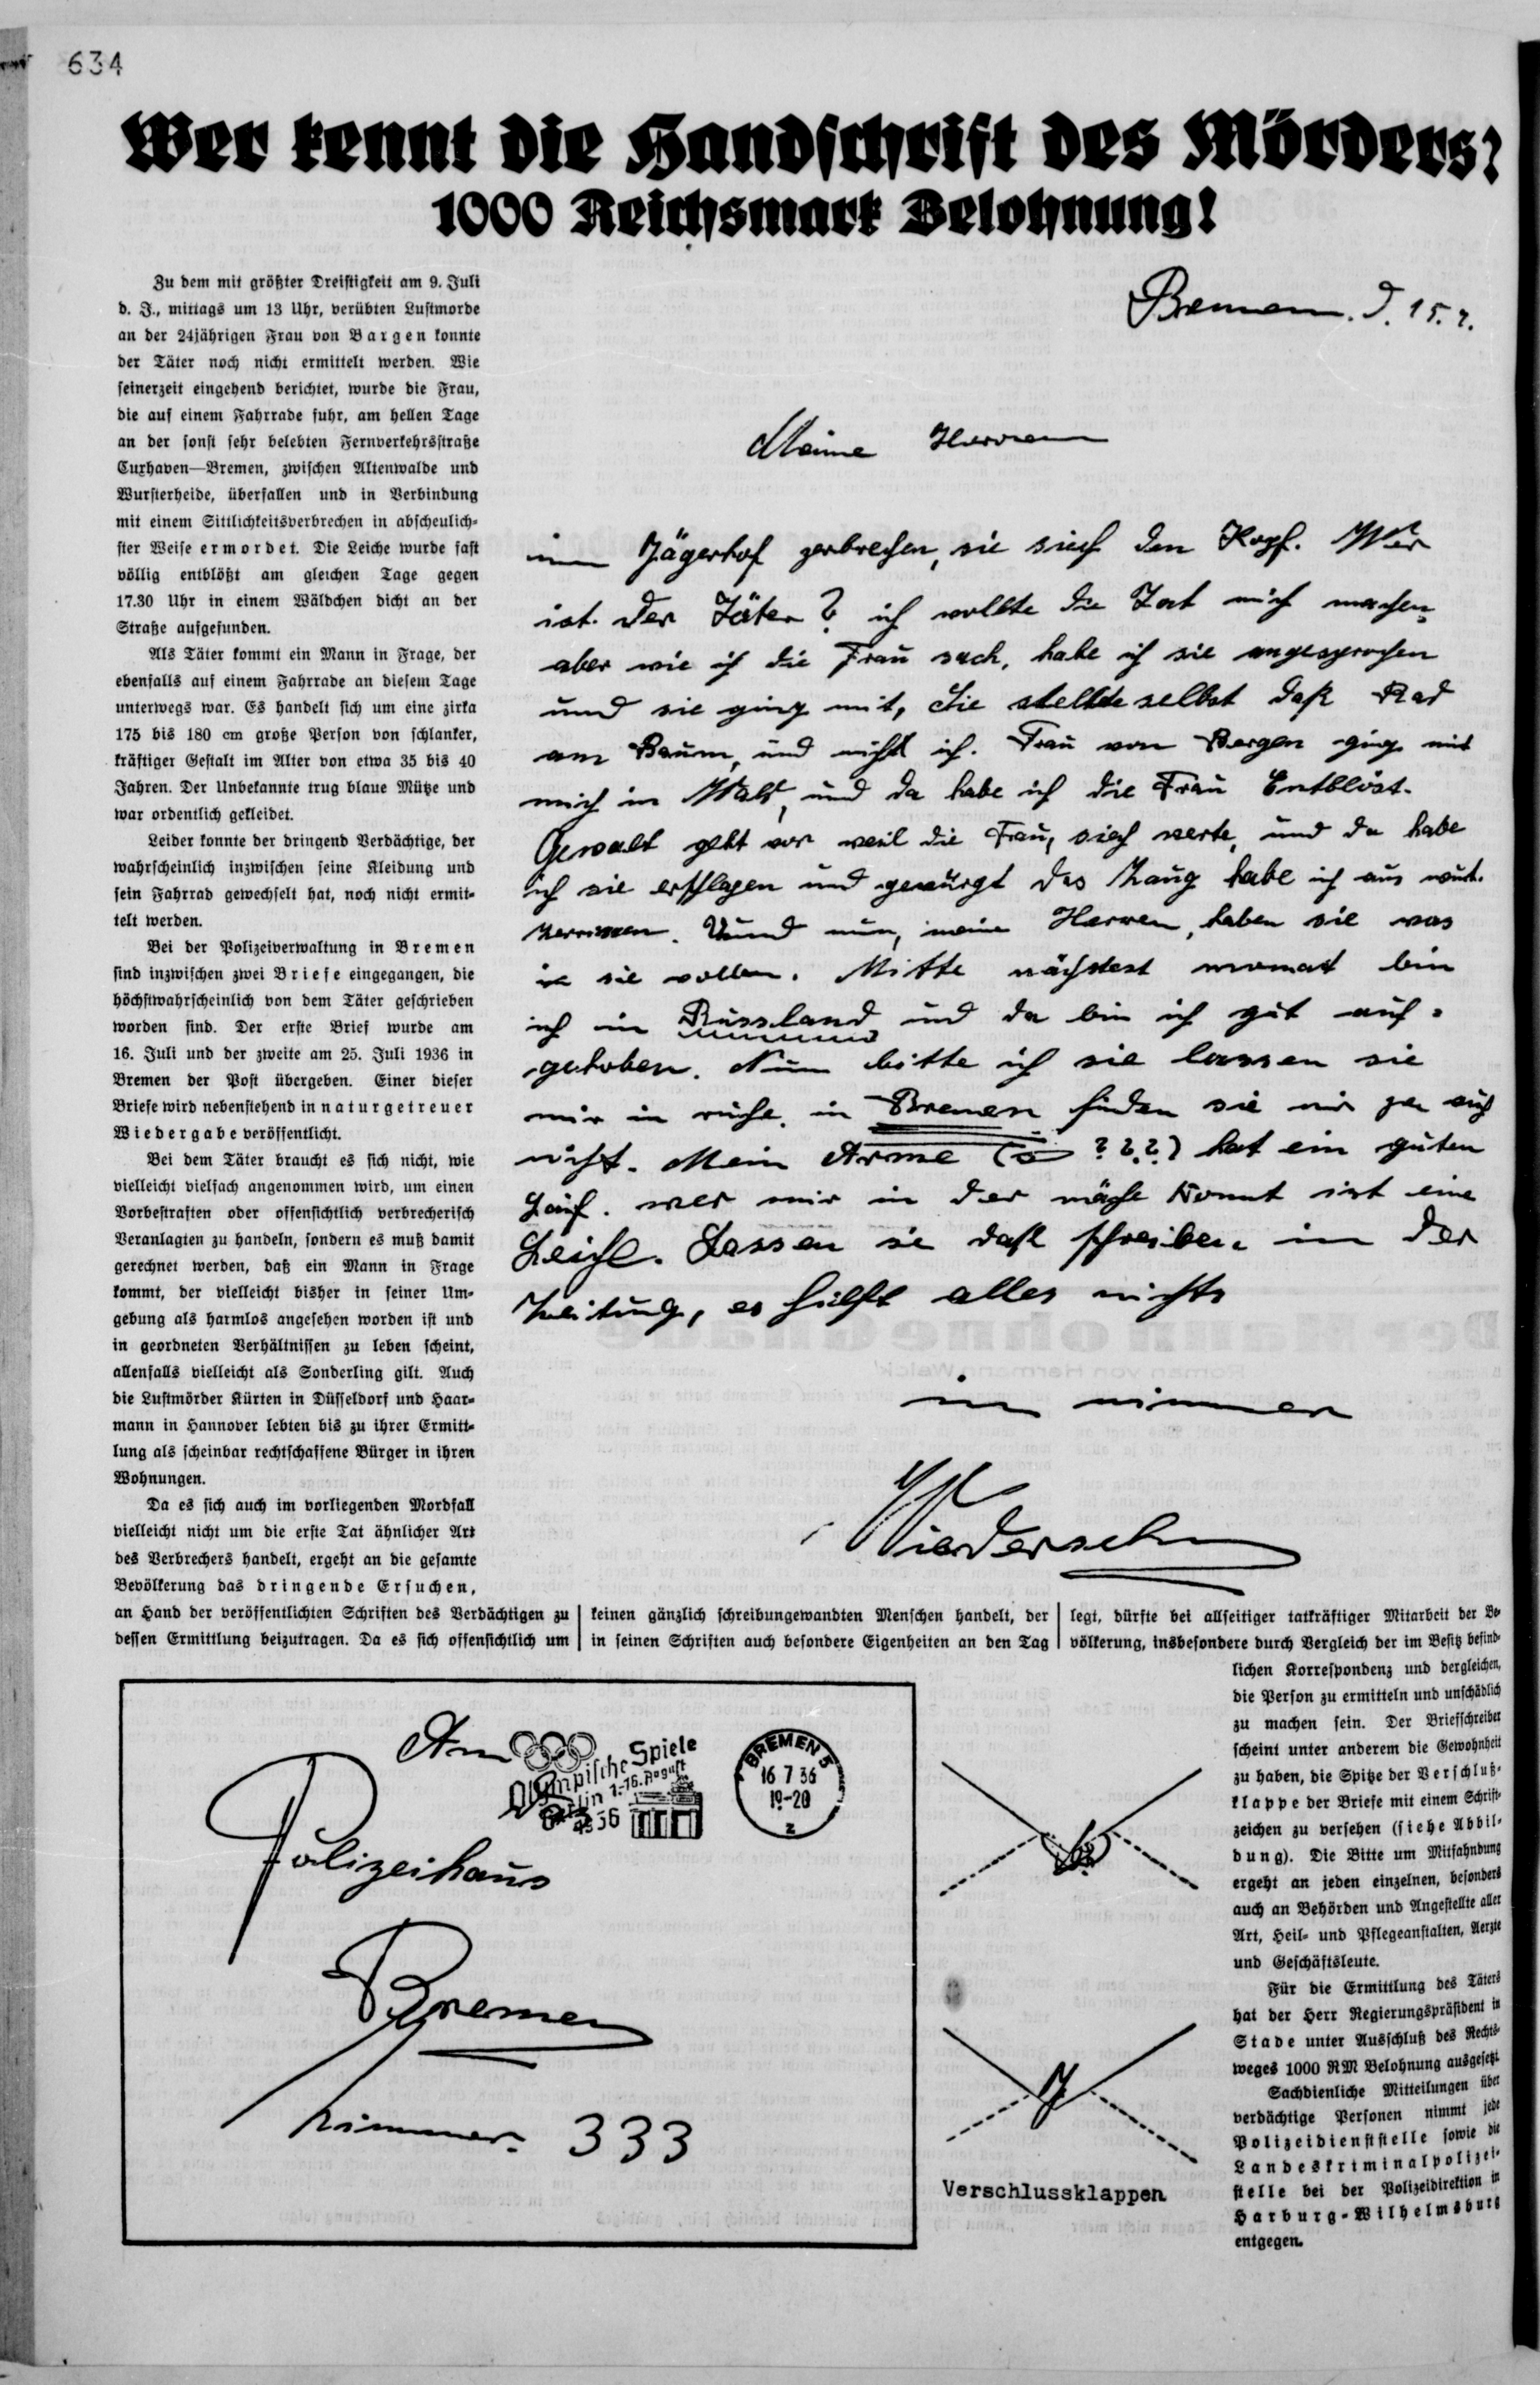 634
Wer kennt die Handschrift des Mörders?
1000 Reichsmark Belohnung!
Zu dem mit größter Dreistigkeit am 9. Juli
d. J., mittags um 13 Uhr, verübten Lustmorde
an der 24jährigen Frau von Bargen konnte
der Täter noch nicht ermittelt werden. Wie
seinerzeit eingehend berichtet, wurde die Frau,
die auf einem Fahrrade fuhr, am hellen Tage
an der sonst sehr belebten Fernverkehrsstraße
Cuxhaven—Bremen, zwischen Altenwalde und
Wursterheide, überfallen und in Verbindung
mit einem Sittlichkeitsverbrechen in abscheulich-
ster Weise ermordet. Die Leiche wurde fast
völlig entblößt am gleichen Tage gegen
17.30 Uhr in einem Wäldchen dicht an der
Straße aufgefunden.
Als Täter kommt ein Mann in Frage, der
ebenfalls auf einem Fahrrade an diesem Tage
unterwegs war. Es handelt sich um eine zirka
175 bis 180 cm große Person von schlanker,
kräftiger Gestalt im Alter von etwa 35 bis 40
Jahren. Der Unbekannte trug blaue Mütze und
war ordentlich gekleidet.
Leider konnte der dringend Verdächtige, der
wahrscheinlich inzwischen seine Kleidung und
sein Fahrrad gewechselt hat, noch nicht ermit-
telt werden.
Bei der Polizeiverwaltung in Bremen
sind inzwischen zwei Briefe eingegangen, die
höchstwahrscheinlich von dem Täter geschrieben
worden sind. Der erste Brief wurde am
16. Juli und der zweite am 25. Juli 1936 in
Bremen der Post übergeben. Einer dieser
Briefe wird nebenstehend in naturgetreuer
Wiedergabe veröffentlicht.
Bei dem Täter braucht es sich nicht, wie
vielleicht vielfach angenommen wird, um einen
Vorbestraften oder offensichtlich verbrecherisch
Veranlagten zu handeln, sondern es muß damit
gerechnet werden, daß ein Mann in Frage
kommt, der vielleicht bisher in seiner Um-
gebung als harmlos angesehen worden ist und
in geordneten Verhältnissen zu leben scheint,
allenfalls vielleicht als Sonderling gilt. Auch
die Lustmörder Kürten in Düsseldorf und Haar-
mann in Hannover lebten bis zu ihrer Ermitt-
lung als scheinbar rechtschaffene Bürger in ihren
Wohnungen.
Da es sich auch im vorliegenden Mordfall
vielleicht nicht um die erste Tat ähnlicher Art
des Verbrechers handelt, ergeht an die gesamte
Bevölkerung das dringende Ersuchen,
an Hand der veröffentlichten Schriften des Verdächtigen zu
dessen Ermittlung beizutragen. Da es sich offensichtlich um
keinen gänzlich schreibungewandten Menschen handelt, der
in seinen Schriften auch besondere Eigenheiten an den Tag
legt, dürfte bei allseitiger tatkräftiger Mitarbeit der Be-
völkerung, insbesondere durch Vergleich der im Besitz befind-
lichen Korrespondenz und dergleichen,
die Person zu ermitteln und unschädlich
zu machen sein. Der Briefschreiber
scheint unter anderem die Gewohnheit
zu haben, die Spitze der Verschluß-
klappe der Briefe mit einem Schrift-
zeichen zu versehen (siehe Abbil-
dung). Die Bitte um Mitfahndung
ergeht an jeden einzelnen, besonders
auch an Behörden und Angestellte aller
Art, Heil- und Pflegeanstalten, Aerzte
und Geschäftsleute.
Für die Ermittlung des Täters
hat der Herr Regierungspräsident in
Stade unter Ausschluß des Rechts-
weges 1000 RM Belohnung ausgesetzt.
Sachdienliche Mitteilungen über
verdächtige Personen nimmt jede
Polizeidienststelle sowie die
Landeskriminalpolizei-
stelle bei der Polizeidirektion in
Harburg-Wilhelmsburg
entgegen.
Bremen. d. 15. 7.
Meine Herren
im Jägerhof zerbrechen, sie sich den Kopf. Wer
ist der Täter? ich wollte die Tat nich machen,
aber wie ich die Frau sach, habe ich sie angesprochen
und sie ging mit, Sie stellte selbst daß Rad
am Baum, und nicht ich. Frau von Bergen ging mit
mich in Wald, und da habe ich die Frau Entblöst.
Gewalt geht vor weil die Frau, sich werte, und da habe
ich sie erschlagen und gewürgt das Zaug habe ich aus wut.
zerrissen. Uund nun, meine Herren, haben sie was
sie wollen. Mitte nächstest monat bin
ich in Russland und da bin ich gut auf-
gehoben. Nun bitte ich sie lassen sie
mir in ruhe. in Bremen finden sie mir ja auch
nicht. Mein Arme ( ???) hat ein guten
Lauf. wer mir in der nähe kommt ist eine
Leiche. Lassen sie daß schreiben in der
Zeitung, es hilft alles nichts
im nimmer
Wiedersehn
An
Polizeihaus
Bremen
Zimmer. 333
Olympische Spiele
Berlin 1.-16. August
1936
BREMEN 5
16 7 36
19-20
z
Verschlussklappen